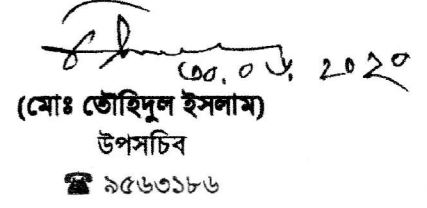 ৩০.০৬.২০২০
(মোঃ তৌহিদুল ইসলাম)
উপসচিব
☎ ৯৫৬৩১৮৬